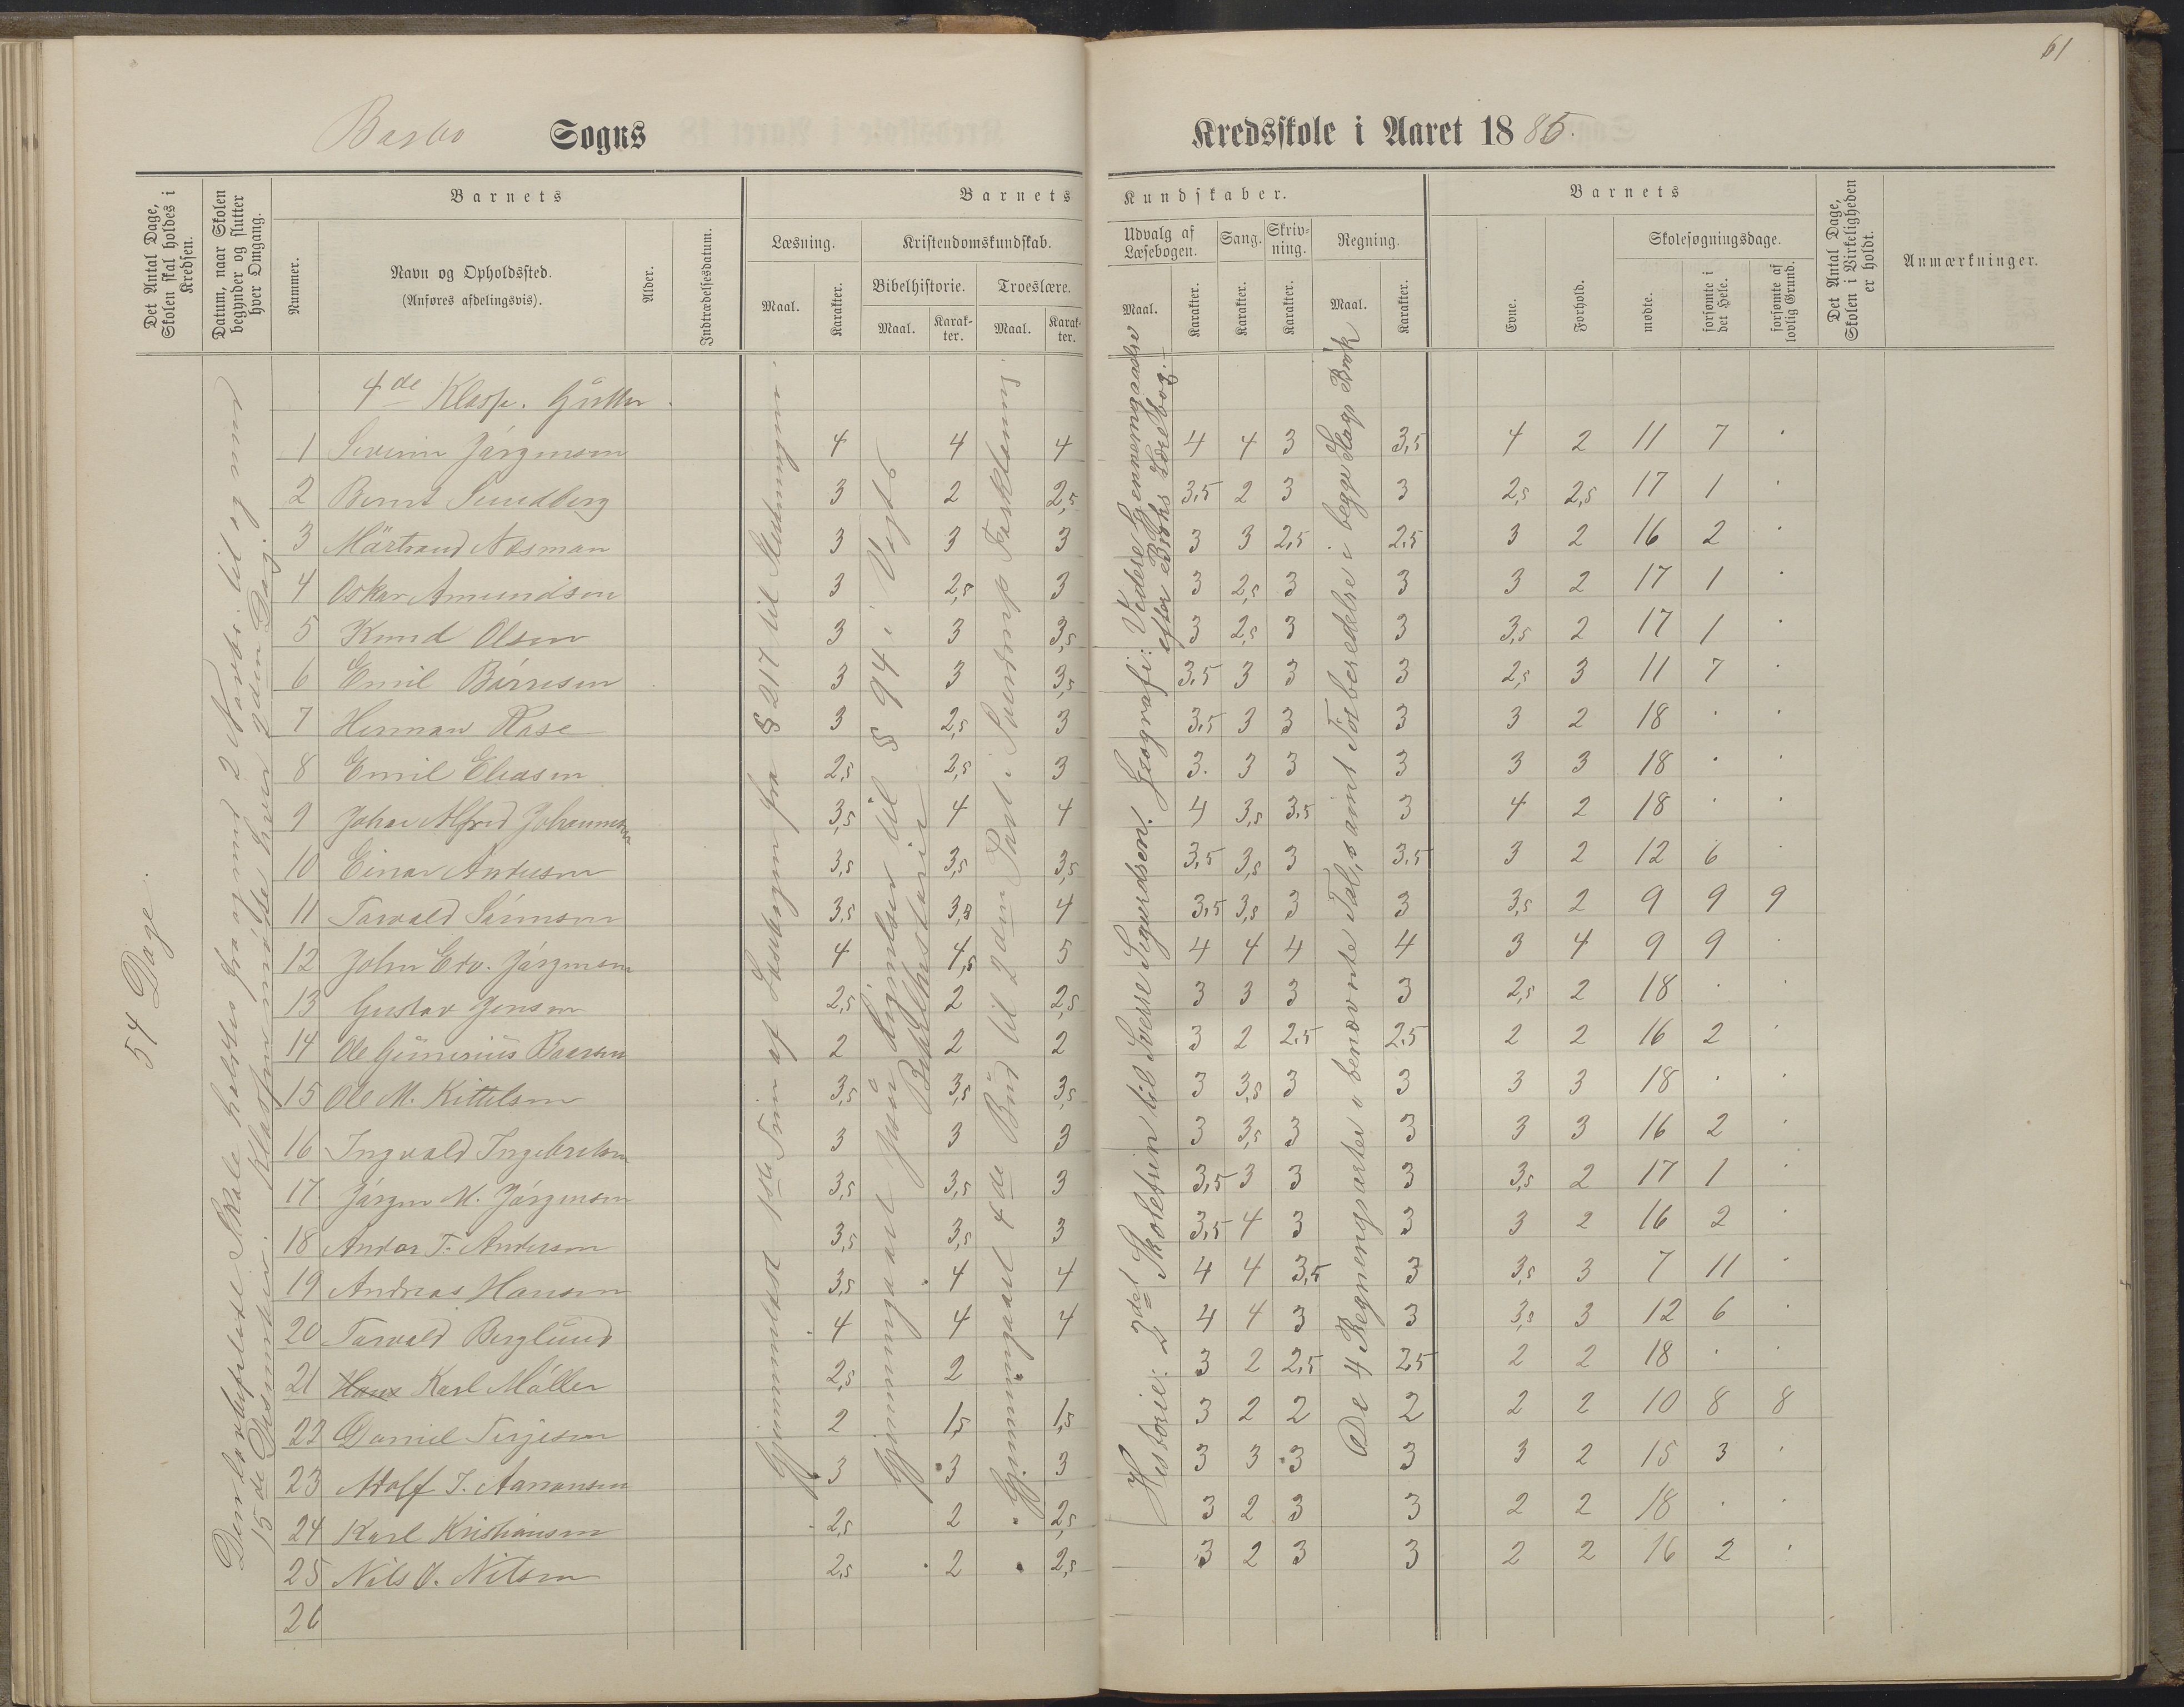 61
Barbo Sogns
Kredsskole i Aaret 1885.
Det Antal Dage, Skolen skal holdes i Kredsen.
Datum, naar Skolen begynder og slutter hver Omgang.
Barnets
Nummer.
Navn og Opholdssted.
(Anføres afdelingsvis).
Alder.
Indtrædelsesdatum.
Barnets Kundskaber.
Læsning.
Maal.
Karakter.
Kristendomskundskab.
Bibelhistorie.
Maal.
Karakter.
Troeslære.
Maal.
Karakter.
Udvalg af Læsebogen.
Maal.
Karakter.
Sang.
Karakter.
Skrivning.
Karakter.
Regning.
Maal.
Karakter.
Barnets
Evne.
Forhold.
Skolesøgningsdage.
mødte.
forsømte i det Hele.
forsømte af lovlig Grund.
Det Antal Dage, Skolen i Virkeligheden er holdt.
Anmærkninger.
54 Dage.
Den lovbefalede Skole holdtes fra og med 2 Novbr. til og med
15de Desember. Klassen mødte hver 2den Dag.
Gjennemlæst 1ste Trin af Læsebogen fra § 217 til Slutningen.
Gjennemgaaet § 94 i Vogts
Bibelhistorie
Gjennemgaaet 4de Bud til 2den Part i Sverdrups Forklaring.
Historie: 2det Skoletrin til Sverre Sigurdsen. Geografi: Videre Gjennemgaaelse
efter Brohs Læsebog.
De 4 Regningsarter i benævnte Tal, samt Forberedelse i begge Slags Brøk
4de Klasse. Gutter.
1 Severin Jörgensen 4 4 4 4 4 3 3,5 4 2 11 7 .
2 Bernt Sundberg 3 2 2,5 3,5 2 3 3 2,5 2,5 17 1 .
3 Mårtrand Næsman 3 3 3 3 3 2,5 2,5 3 2 16 2 .
4 Oskar Amundsen 3 2,5 3 3 2,5 3 3 3 2 17 1 .
5 Knud Olsen 3 3 3,5 3 2,5 3 3 3,5 2 17 1 .
6 Emil Börresen 3 3 3,5 3,5 3 3 3 2,5 3 11 7 .
7 Herman Rase 3 2,5 3 3,5 3 3 3 3 2 18 . .
8 Emil Eliasen 2,5 2,5 3 3. 3 3 3 3 3 18 . .
9 Johan Alfred Johannesen 3,5 4 4 4 3,5 3,5 3 4 2 18 . .
10 Einar Andersen 3,5 3,5 3,5 3,5 3,5 3 3,5 3 2 12 6 .
11 Torvald Sörensen 3,5 3,5 4 3,5 3,5 3 3 3,5 2 9 9 9
12 John Edv. Jörgensen 4 4,5 5 4 4 4 4 3 4 9 9 .
13 Gustav Jensen 2,5 2 2,5 3 3 3 3 2,5 2 18 . .
14 Ole Gunerius Baarsen 2 2 2 3 2 2,5 2,5 2 2 16 2 .
15 Ole M. Kittelsen 3,5 3,5 3,5 3 3,5 3 3 3 3 18 . .
16 Ingvald Ingebretsen 3 3 3 3 3,5 3 3 3 3 16 2 .
17 Jörgen M. Jörgensen 3,5 3,5 3 3,5 3 3 3 3,5 2 17 1 .
18 Andor T. Andersen 3,5 3,5 3 3,5 4 3 3 3 2 16 2 .
19 Andreas Hansen 3,5 4 4 4 4 3,5 3 3,5 3 7 11 .
20 Torvald Berglund 4 4 4 4 4 3 3 3,5 3 12 6 .
21 Hans Karl Möller 2,5 2 . 3 2 2,5 2,5 2 2 18 . .
22 Daniel Terjesen 2 1,5 1,5 3 2 2 2 2 2 10 8 8
23 Adolf J. Aanonsen 3 3 3 3 3 3 3 3 2 15 3 .
24 Karl Kristiansen 2,5 2 2,5 3 2 3 3 2 2 18 . .
25 Nils O. Nilsen 2,5 2 2,5 3 2 3 3 2 2 16 2 .
26